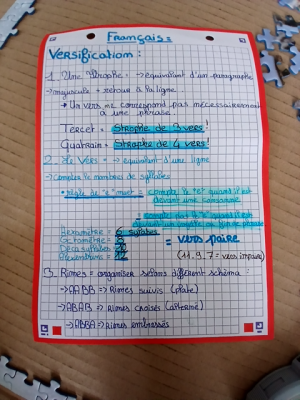 Français =
Versification :
1. Une Strophe = → équivalent d'un paragraphe
→ majuscule + retour à la ligne
* Un vers ne correspond pas nécessairement
à une phrase.
Tercet = Strophe de 3 vers !
Quatrain = Strophe de 4 vers !
2. Le Vers = → équivalent d'une ligne
→ compter le nombres de syllabes
* règle du "e" muet = compte le "e" quand il est
devant une consonne
≠ compte pas le "e" quand il est
devant une voyelle ou fin de phrase
Hexamètre = 6 syllabes
Octomètre = 8
Décasyllabe = 10
Alexandrins = 12
= vers paire
(11.9.7 = vers impaire)
3. Rimes = organiser selons différent schéma :
→ AABB => Rimes suivis (plate)
→ ABAB => Rimes croisés (alterné)
→ ABBA => Rimes embrassés